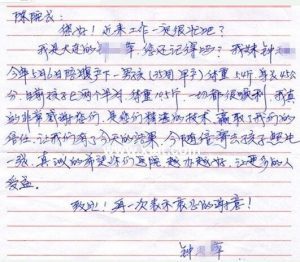 陈院长：
您好！近来工作一定很忙吧？
我是大连的 萍，您还记得吗？我妹钟
今年5月6日陪护下一男孩（ 平）体重5.4斤，身长 45公
分，目前孩子已两个半月，体重10.5斤，一切都很顺利，我真
的非常感谢您们，是您们精湛的技术，赢取了我们的
信任，让我们有了今天的结果，今随信寄去孩子照片
一张，真诚的希望你们医院越办越好，让更多的人
受益。
致礼！再一次表示衷心的谢意！
钟 萍